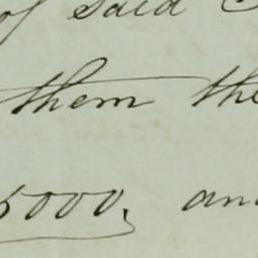 of said
them the
5000, and